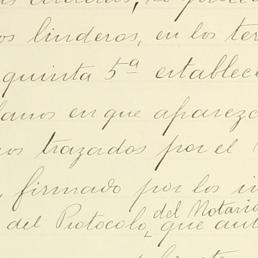 os linderos, en los ter
quinta 5ª establec
lanos en que aparezc
os trazados por el
, firmado por los i
del Notario
del Protocolo, que aut